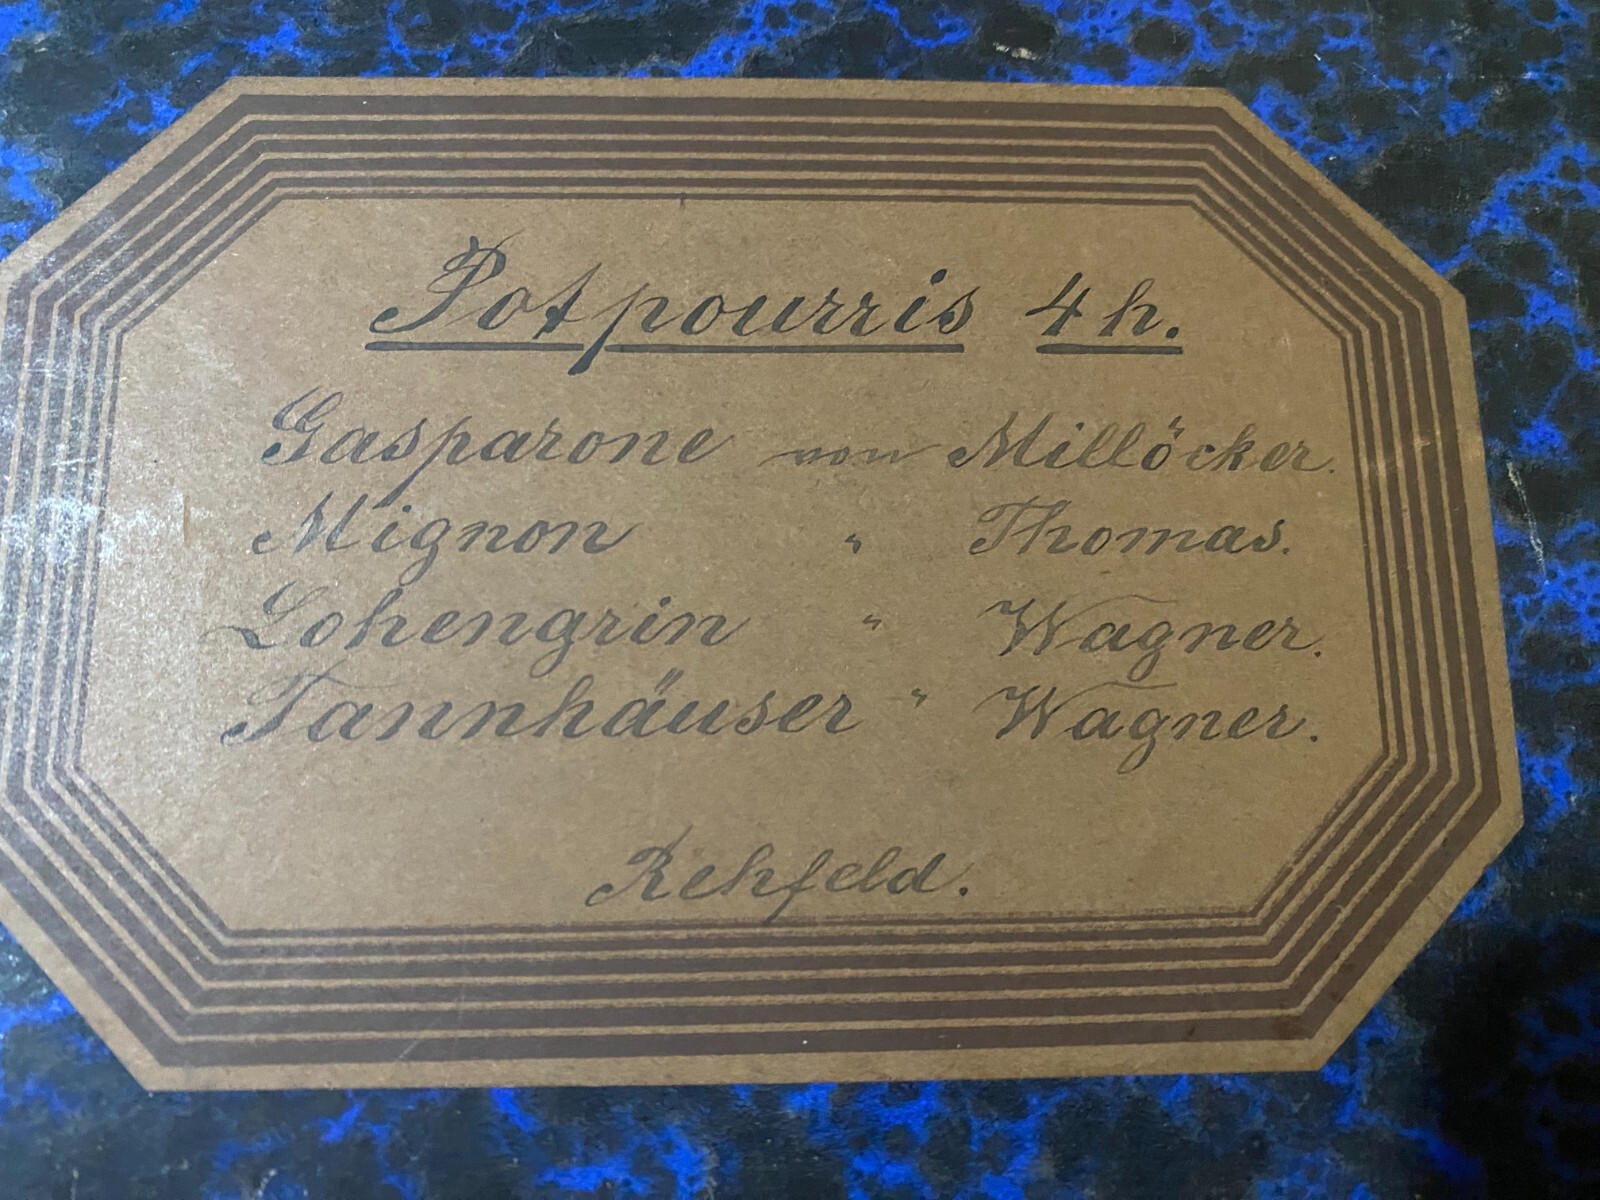 Potpourris 4 h.
Gasparone von Millöcker.
Mignon " Thomas.
Lohengrin " Wagner.
Tannhäuser " Wagner.
Rehfeld.